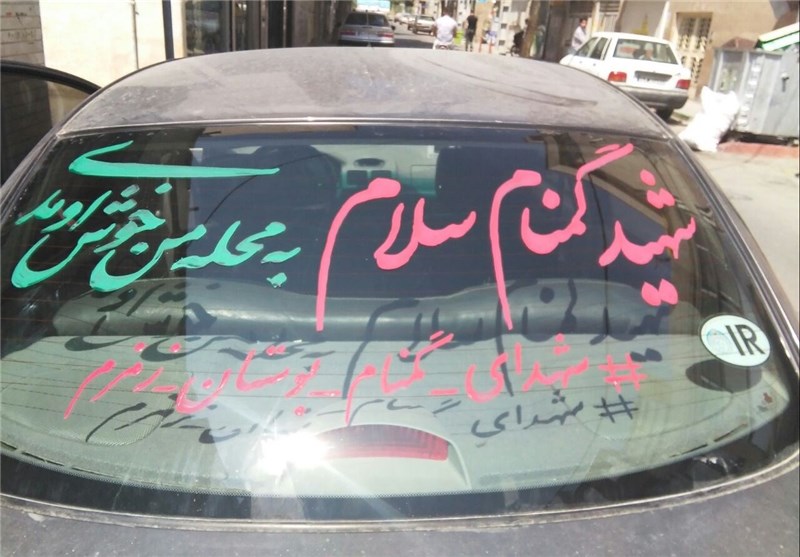 شهید گمنام سلام
به محله من خوش اومدی
#شهدای_گمنام_بوستان_زمزم
IR